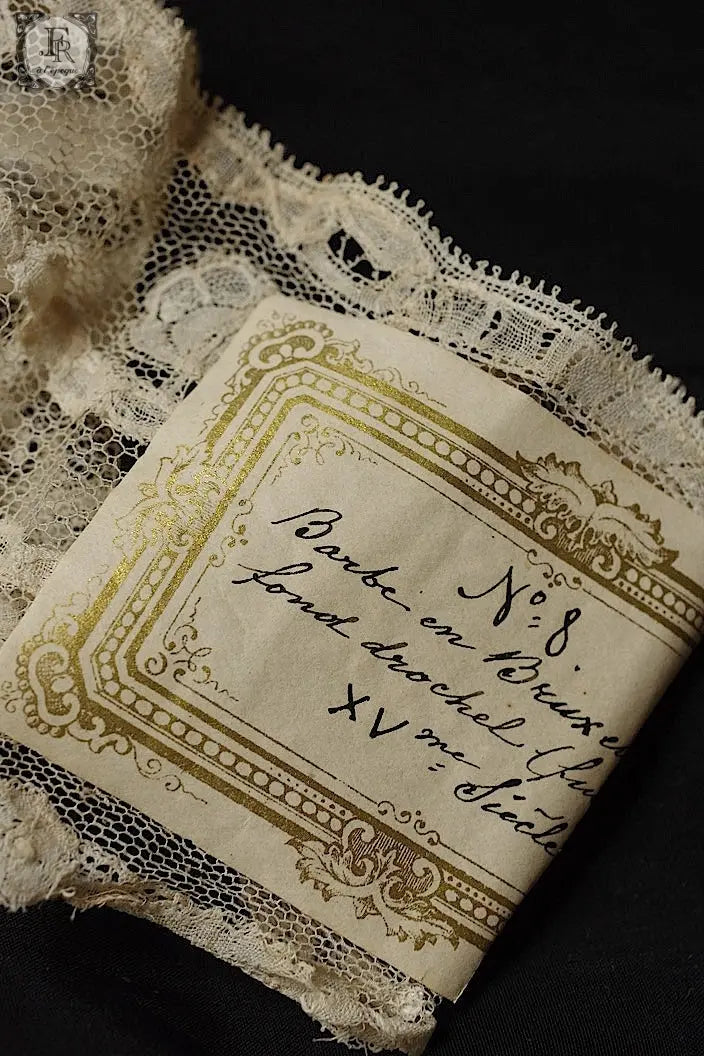 FR
à l'époque
Nº 8.
Barbe en Bruxe
fond drochel (fu
XVme Siècle